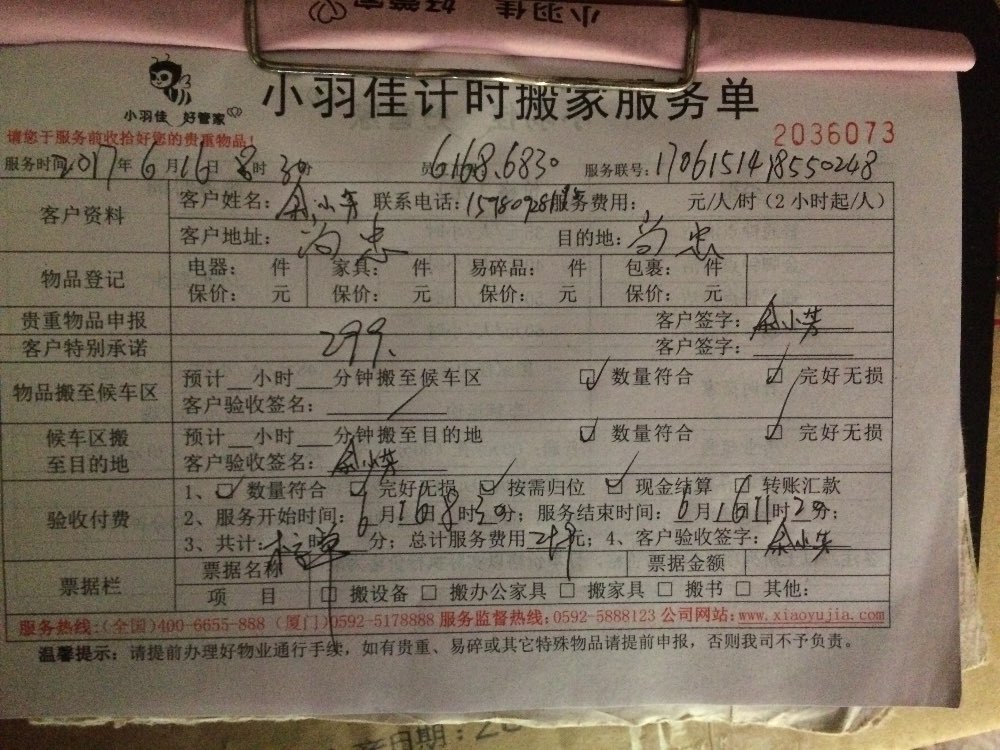 小羽佳 好管家
小羽佳 好管家
小羽佳计时搬家服务单
请您于服务前收拾好您的贵重物品!
2036073
服务时间 2017年6月16日8时30分 员 6168.6830 服务联号: 1706151418550248
客户资料
客户姓名: 余小芳 联系电话: 服务费用: 元/人/时(2小时起/人)
客户地址: 尚忠 目的地: 尚忠
物品登记
电器: 件 家具: 件 易碎品: 件 包裹: 件
保价: 元 保价: 元 保价: 元 保价: 元
贵重物品申报 客户签字: 余小芳
客户特别承诺 299. 客户签字:
物品搬至候车区
预计__小时___分钟搬至候车区 ☑ 数量符合 ☑ 完好无损
客户验收签名:
候车区搬
至目的地
预计__小时___分钟搬至目的地 ☑ 数量符合 ☑ 完好无损
客户验收签名: 余小芳
验收付费
1、☑ 数量符合 ☑ 完好无损 ☑ 按需归位 ☑ 现金结算 □ 转账汇款
2、服务开始时间: 6月16日8时30分; 服务结束时间: 6月16日11时20分;
3、共计: 时 分; 总计服务费用 元; 4、客户验收签字: 余小芳
票据栏
票据名称 票据金额
项 目 □ 搬设备 □ 搬办公家具 □ 搬家具 □ 搬书 □ 其他:
服务热线:(全国)400-6655-888 (厦门)0592-5178888 服务监督热线: 0592-5888123 公司网站: www.xiaoyujia.com
温馨提示: 请提前办理好物业通行手续, 如有贵重、易碎或其它特殊物品请提前申报, 否则我司不予负责。